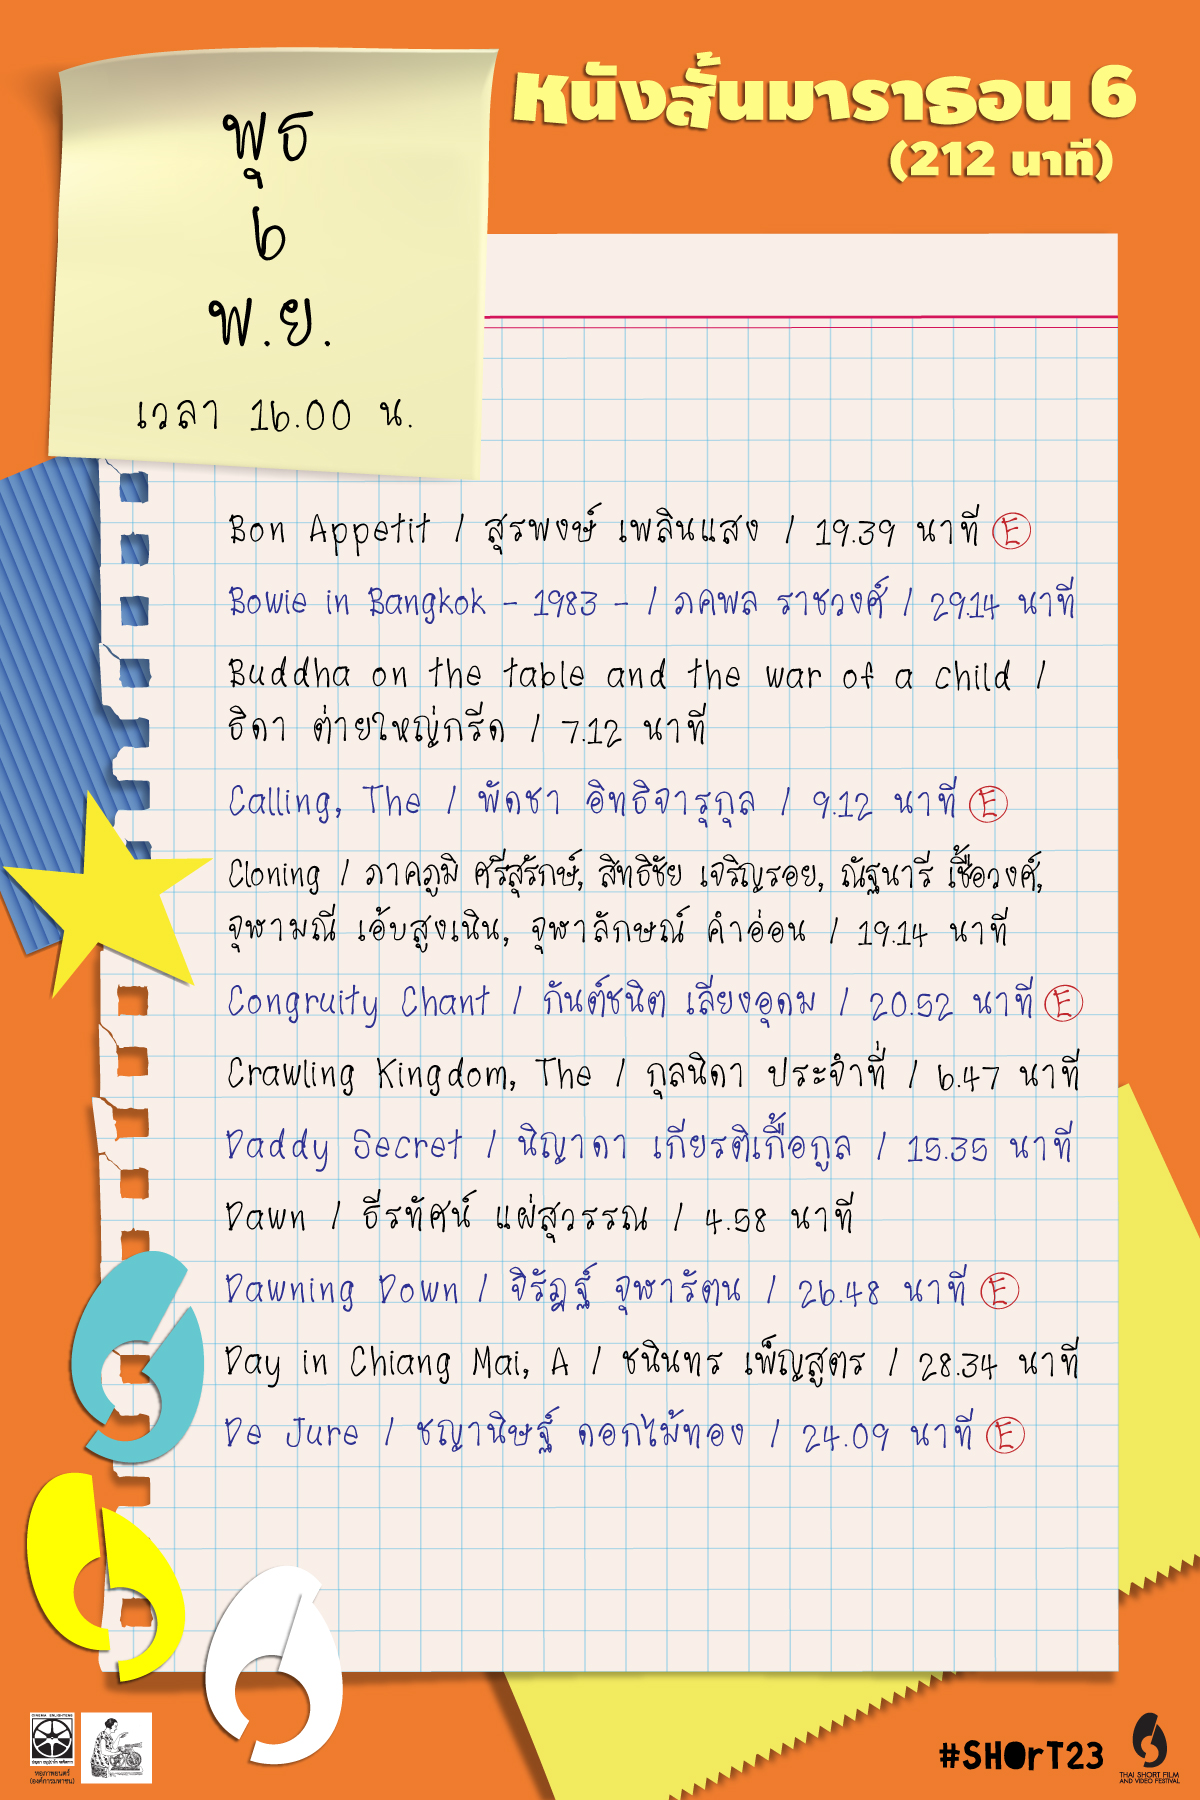 หนังสั้นมาราธอน 6
(212 นาที)
พุธ
6
พ.ย.
เวลา 16.00 น.
Bon Appetit / สุรพงษ์ เพลินแสง / 19.39 นาที E
Bowie in Bangkok - 1983 - / ภคพล ราชวงศ์ / 29.14 นาที
Buddha on the table and the war of a child /
ธิดา ต่ายใหญ่กรีด / 7.12 นาที
Calling, The / พัดชา อิทธิจารุกุล / 9.12 นาที E
Cloning / ภาคภูมิ ศรีสุรักษ์, สิทธิชัย เจริญรอย, ณัฐนารี เชื้อวงศ์,
จุฬามณี เอ้บสูงเนิน, จุฬาลักษณ์ คำอ่อน / 19.14 นาที
Congruity Chant / กันต์ชนิต เลียงอุดม / 20.52 นาที E
Crawling Kingdom, The / กุลนิดา ประจำที่ / 6.47 นาที
Daddy Secret / นิญาดา เกียรติเกื้อกูล / 15.35 นาที
Dawn / ธีรทัศน์ แผ่สุวรรณ / 4.58 นาที
Dawning Down / จิรัฎฐ์ จุฬารัตน / 26.48 นาที E
Day in Chiang Mai, A / ชนินทร เพ็ญสูตร / 28.34 นาที
De Jure / ชญานิษฐ์ ดอกไม้ทอง / 24.09 นาที E
CINEMA ENLIGHTENS
หอภาพยนตร์
(องค์การมหาชน)
#SHOrT23
THAI SHORT FILM
AND VIDEO FESTIVAL